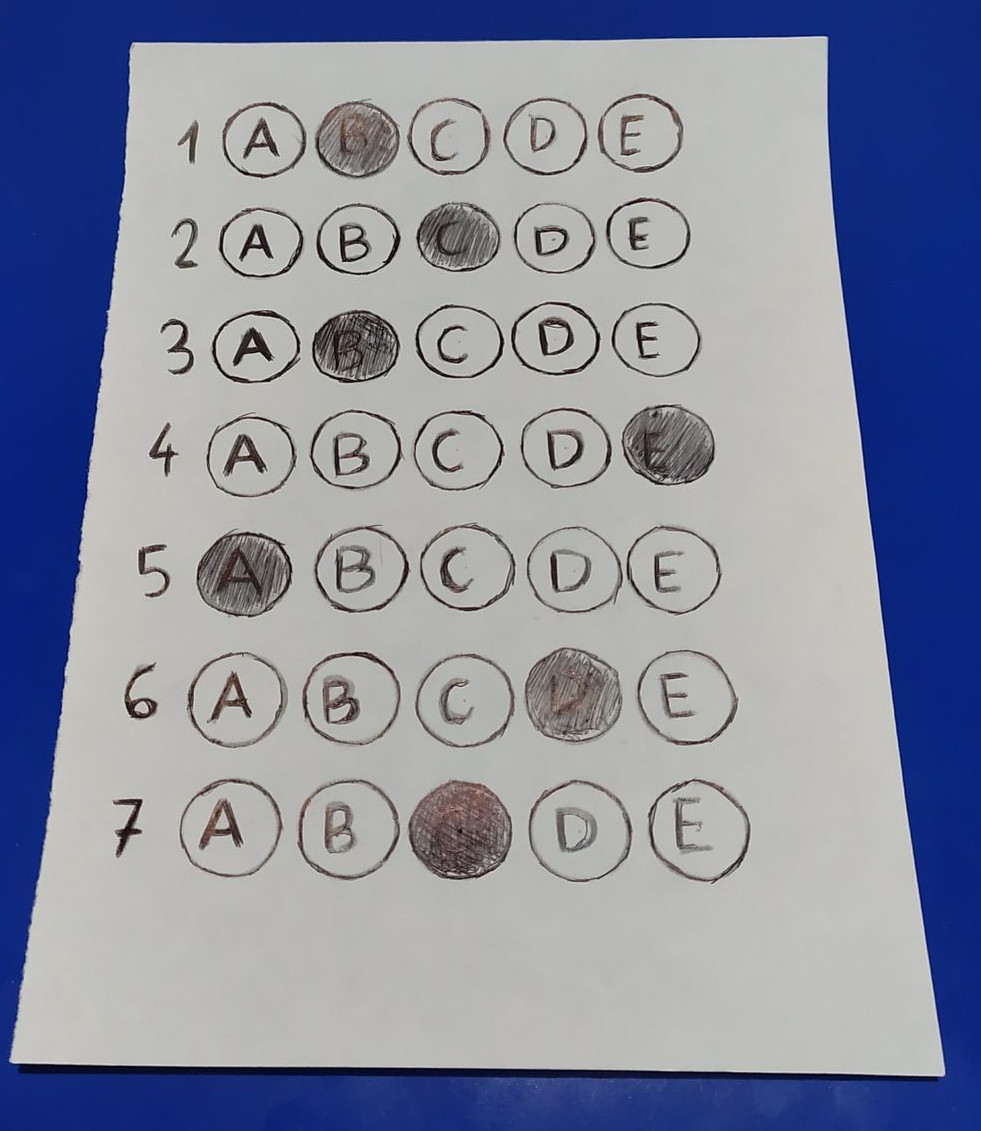 1 A B C D E
2 A B C D E
3 A B C D E
4 A B C D E
5 A B C D E
6 A B C D E
7 A B D E